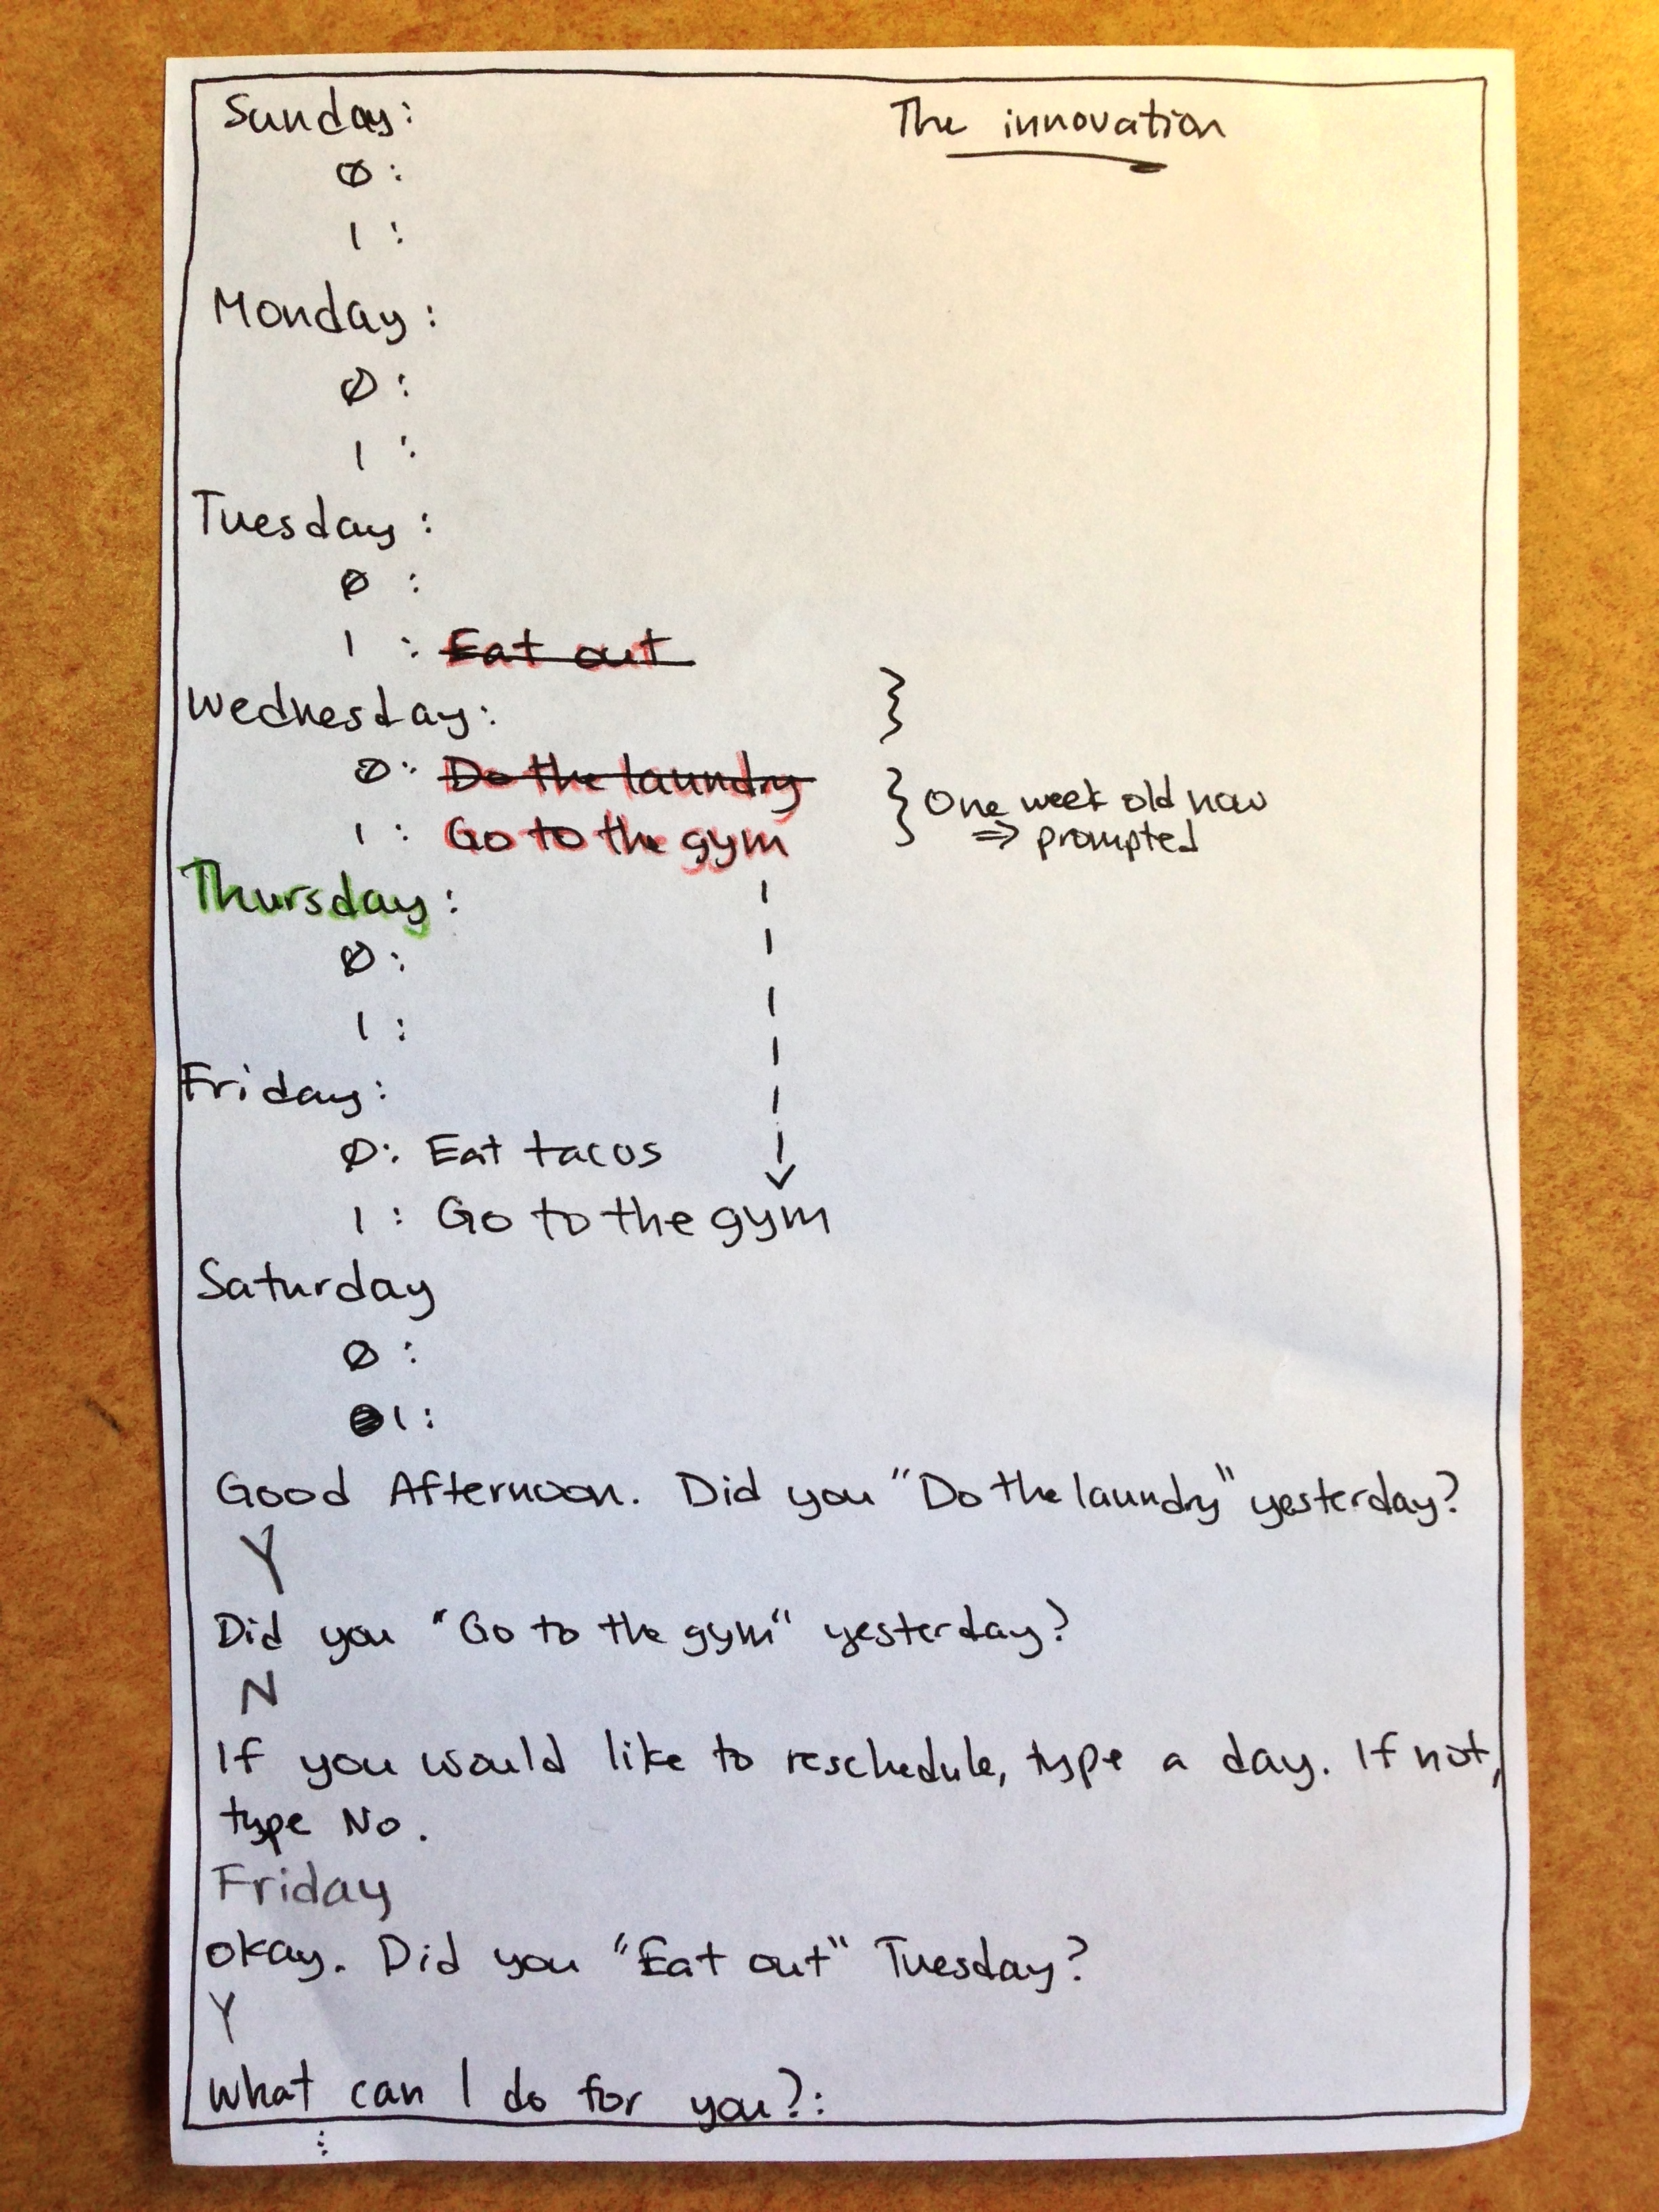 Sunday:
The innovation
0:
1:
Monday:
0:
1:
Tuesday:
0:
1: Eat out
Wednesday:
0: Do the laundry
1: Go to the gym
} One week old now
⇒ prompted
Thursday:
0:
1:
Friday:
0: Eat tacos
1: Go to the gym
Saturday
0:
1:
Good Afternoon. Did you "Do the laundry" yesterday?
Y
Did you "Go to the gym" yesterday?
N
If you would like to reschedule, type a day. If not,
type No.
Friday
Okay. Did you "Eat out" Tuesday?
Y
What can I do for you?: